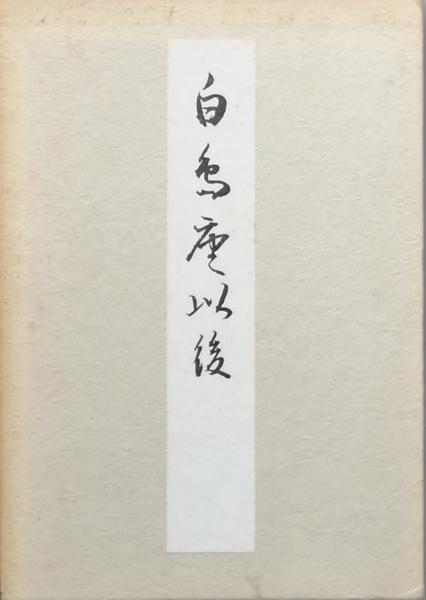 白鳥座以後